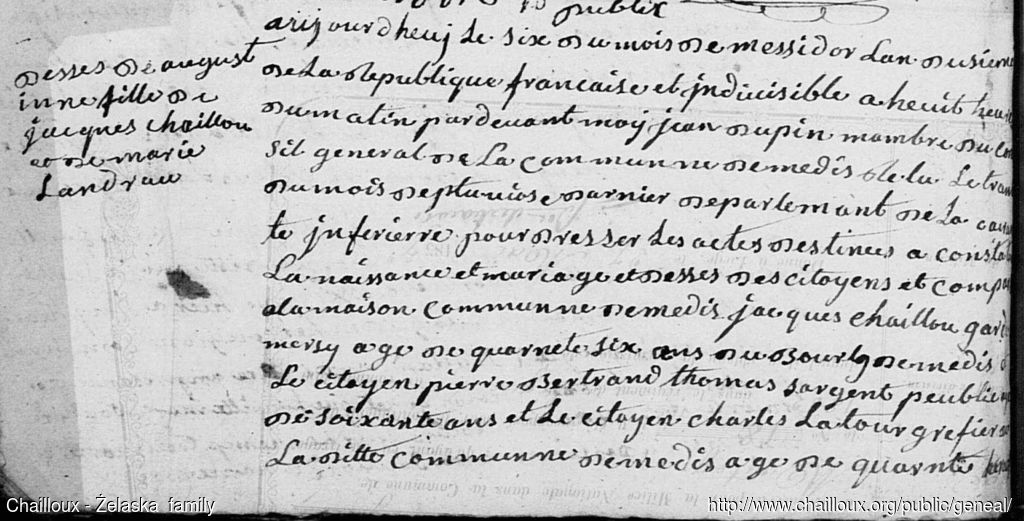 publix
desses de august
inne fille de
jacques chaillou
et de marie
Landrau
aujourdheuj Le six du mois de messidor Lan dusieme
de La Republique francaise et jndivisible a heuit heur
du matin pardevant moy jean dupin mambre du Con
sil general de La communne de medis de la Le tran
du mois de pluviose darnier departemant de La
te jnferierre pour dresser Les actes destinees a consta
La naissance et mariage et desses des citoyens et compa
a La maison communne de medis jacques chaillou gard
mersy age de quarnete six ans du Bourg de medis
Le citoyen pierre Bertrand thomas sargent peublic
de soixante ans et Le citoyen charles Latour grefier
La ditte communne de medis age de quarnte
Chailloux - Żelaska family
http://www.chailloux.org/public/geneal/